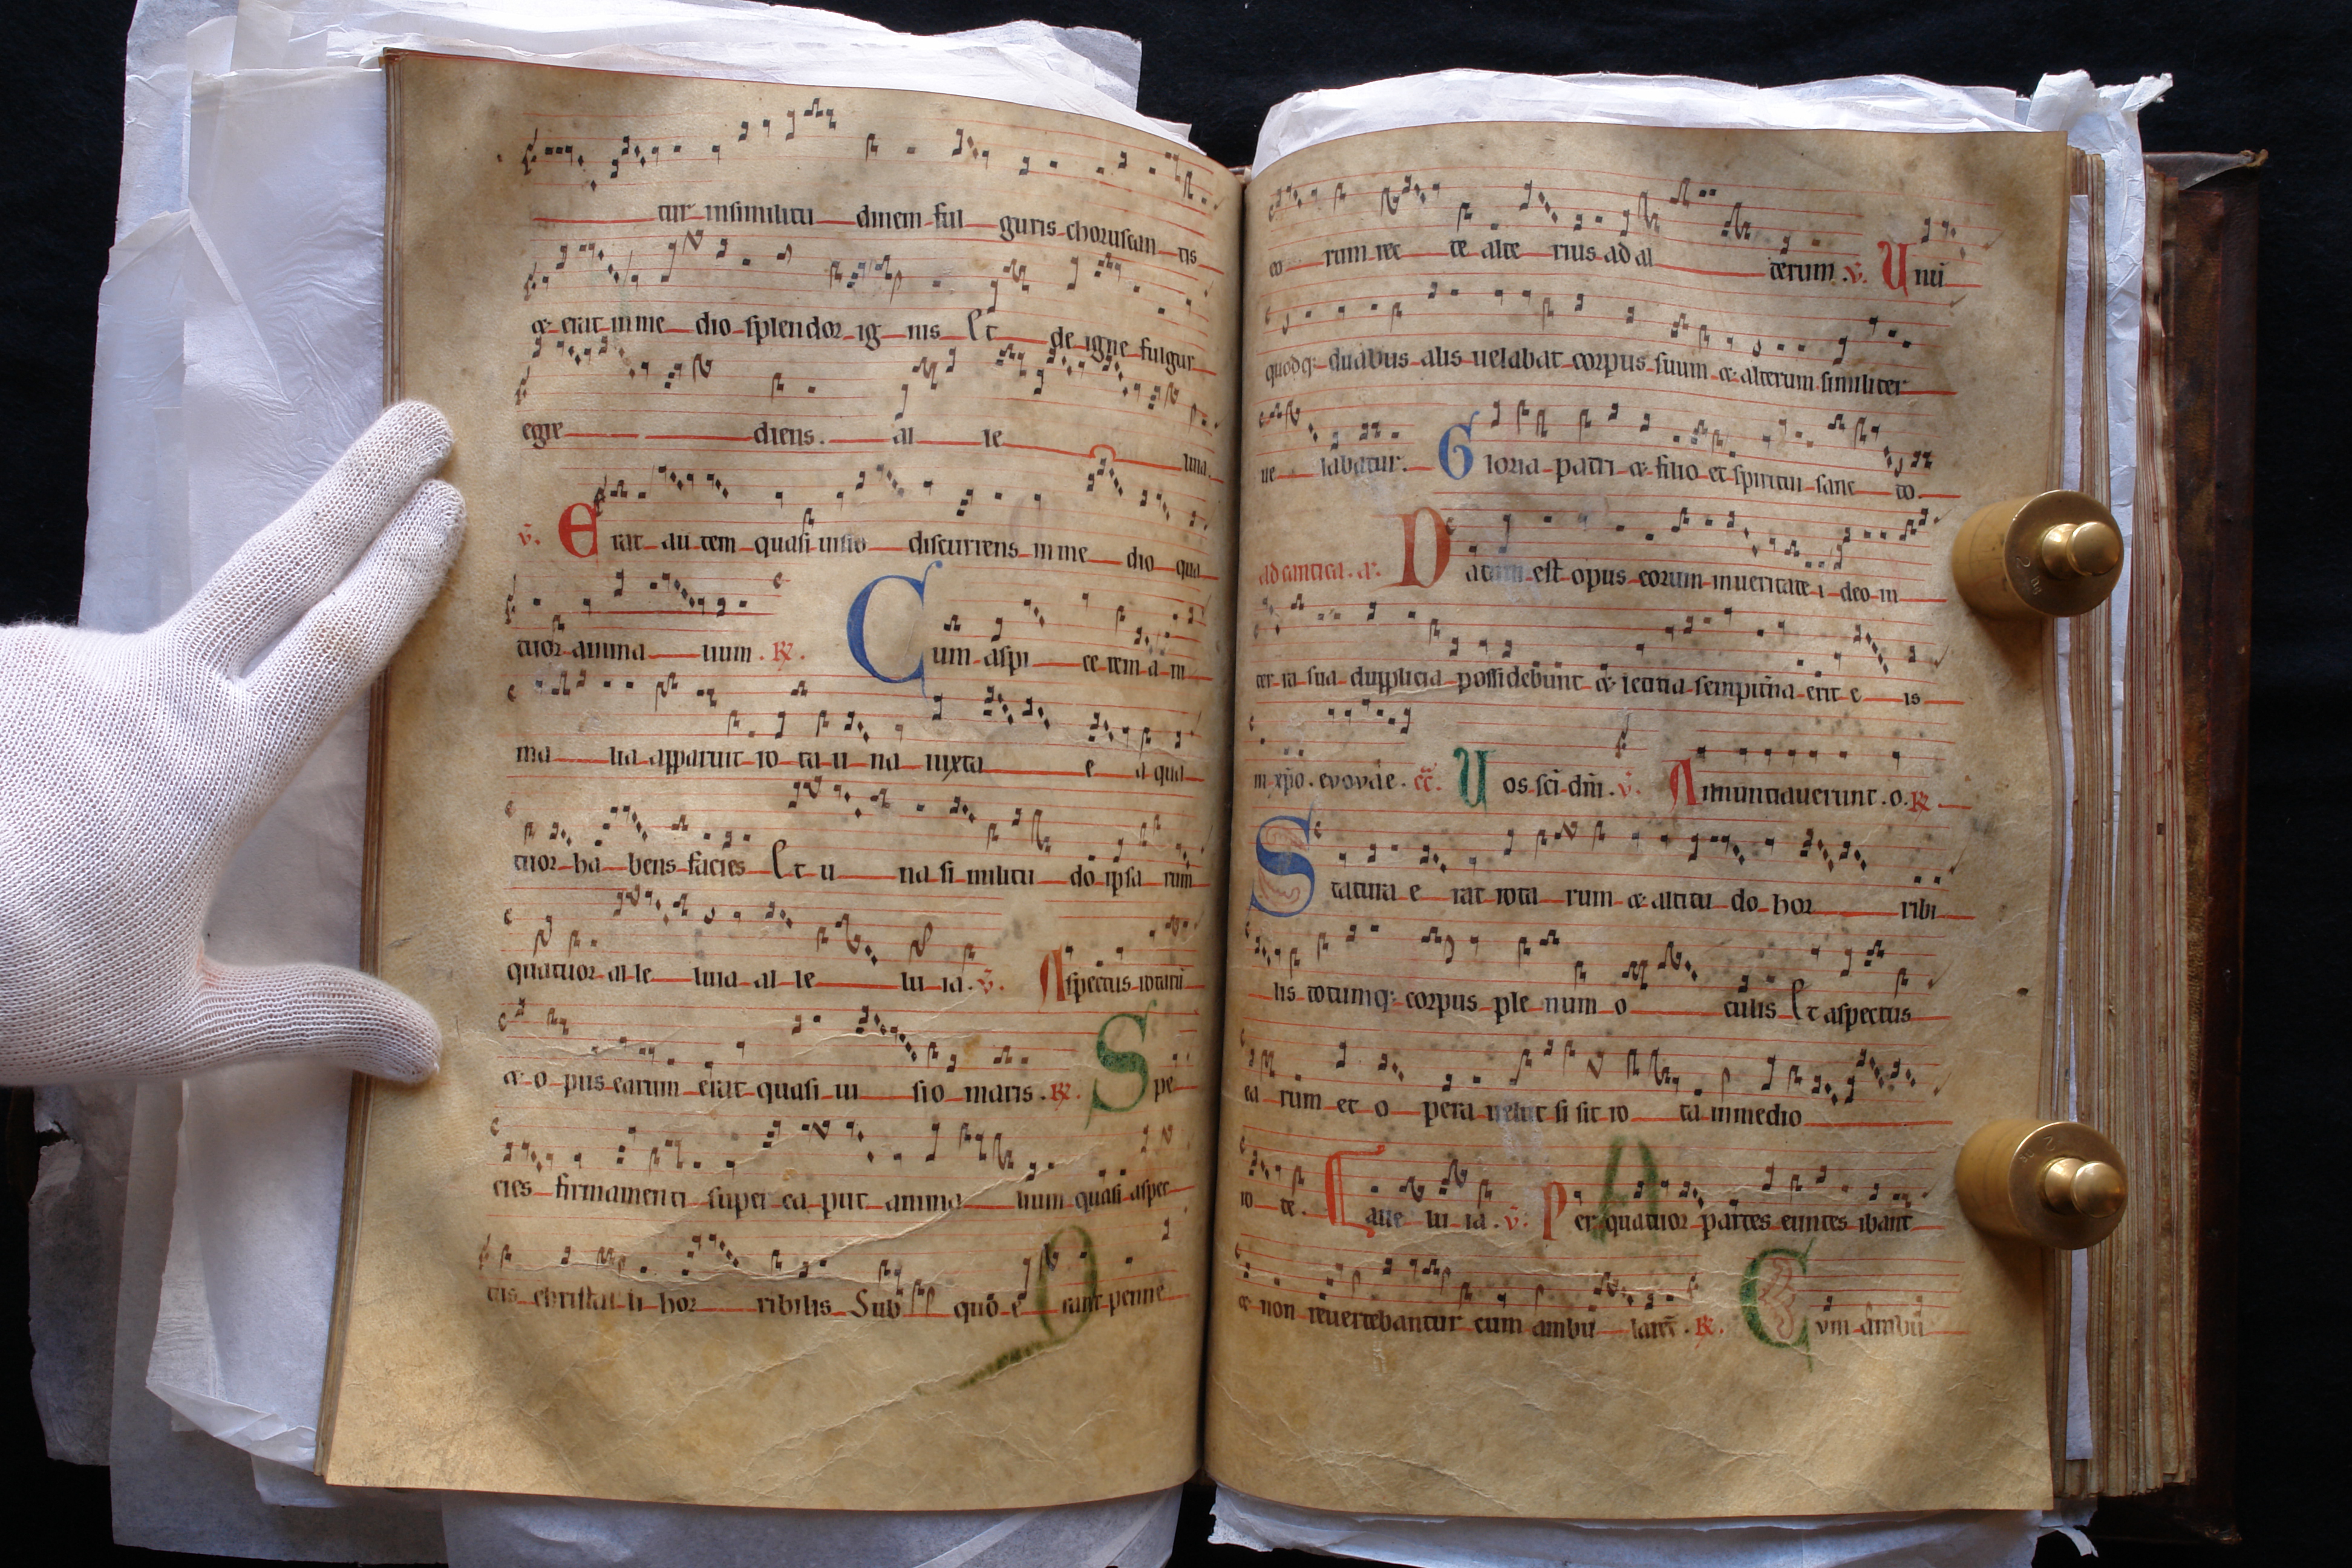 tur insimilitu dinem ful guris choruscan tis
& erat in me dio splendor ig nis Et de igne fulgur
egre diens. al le luia.
v. Erat au tem quasi uisio discurrens in me dio qua
tuor anima lium. R. Cum aspi ce rem a ni
ma lia apparuit ro ta u na iuxta e a qua
tuor ha bens facies Et u na si militu do ipsa rum
quatuor al le luia al le lu ia. v. Aspectus rotarū
& o pus earum erat quasi ui sio maris. R. Spe
cies firmamenti super ca put anima lium quasi aspec
tus christal li hor ribilis Sub quo e rant penne
eo rum rec te alte rius ad al terum. v. Uni
quodq: duabus alis uelabat corpus suum & alterum similiter
ue labatur. Gloria patri & filio et spiritui sanc to.
ad cantica. a. Datum est opus eorum in ueritate i deo in
ter ra sua dupplicia possidebunt & letitia sempitna erit e is
in xpo. evovae. cc. Uos sci dni. v. Annuntiauerunt. o. R.
Statura e rat rota rum & altitu do hor ribi
lis totumq: corpus ple num o culis Et aspectus
ea rum et o pera uelut si sit ro ta in medio
ro te. E alle lu ia. v. Per quatuor partes euntes ibant
& non reuertebantur cum ambu larēt. R. Cum ambu